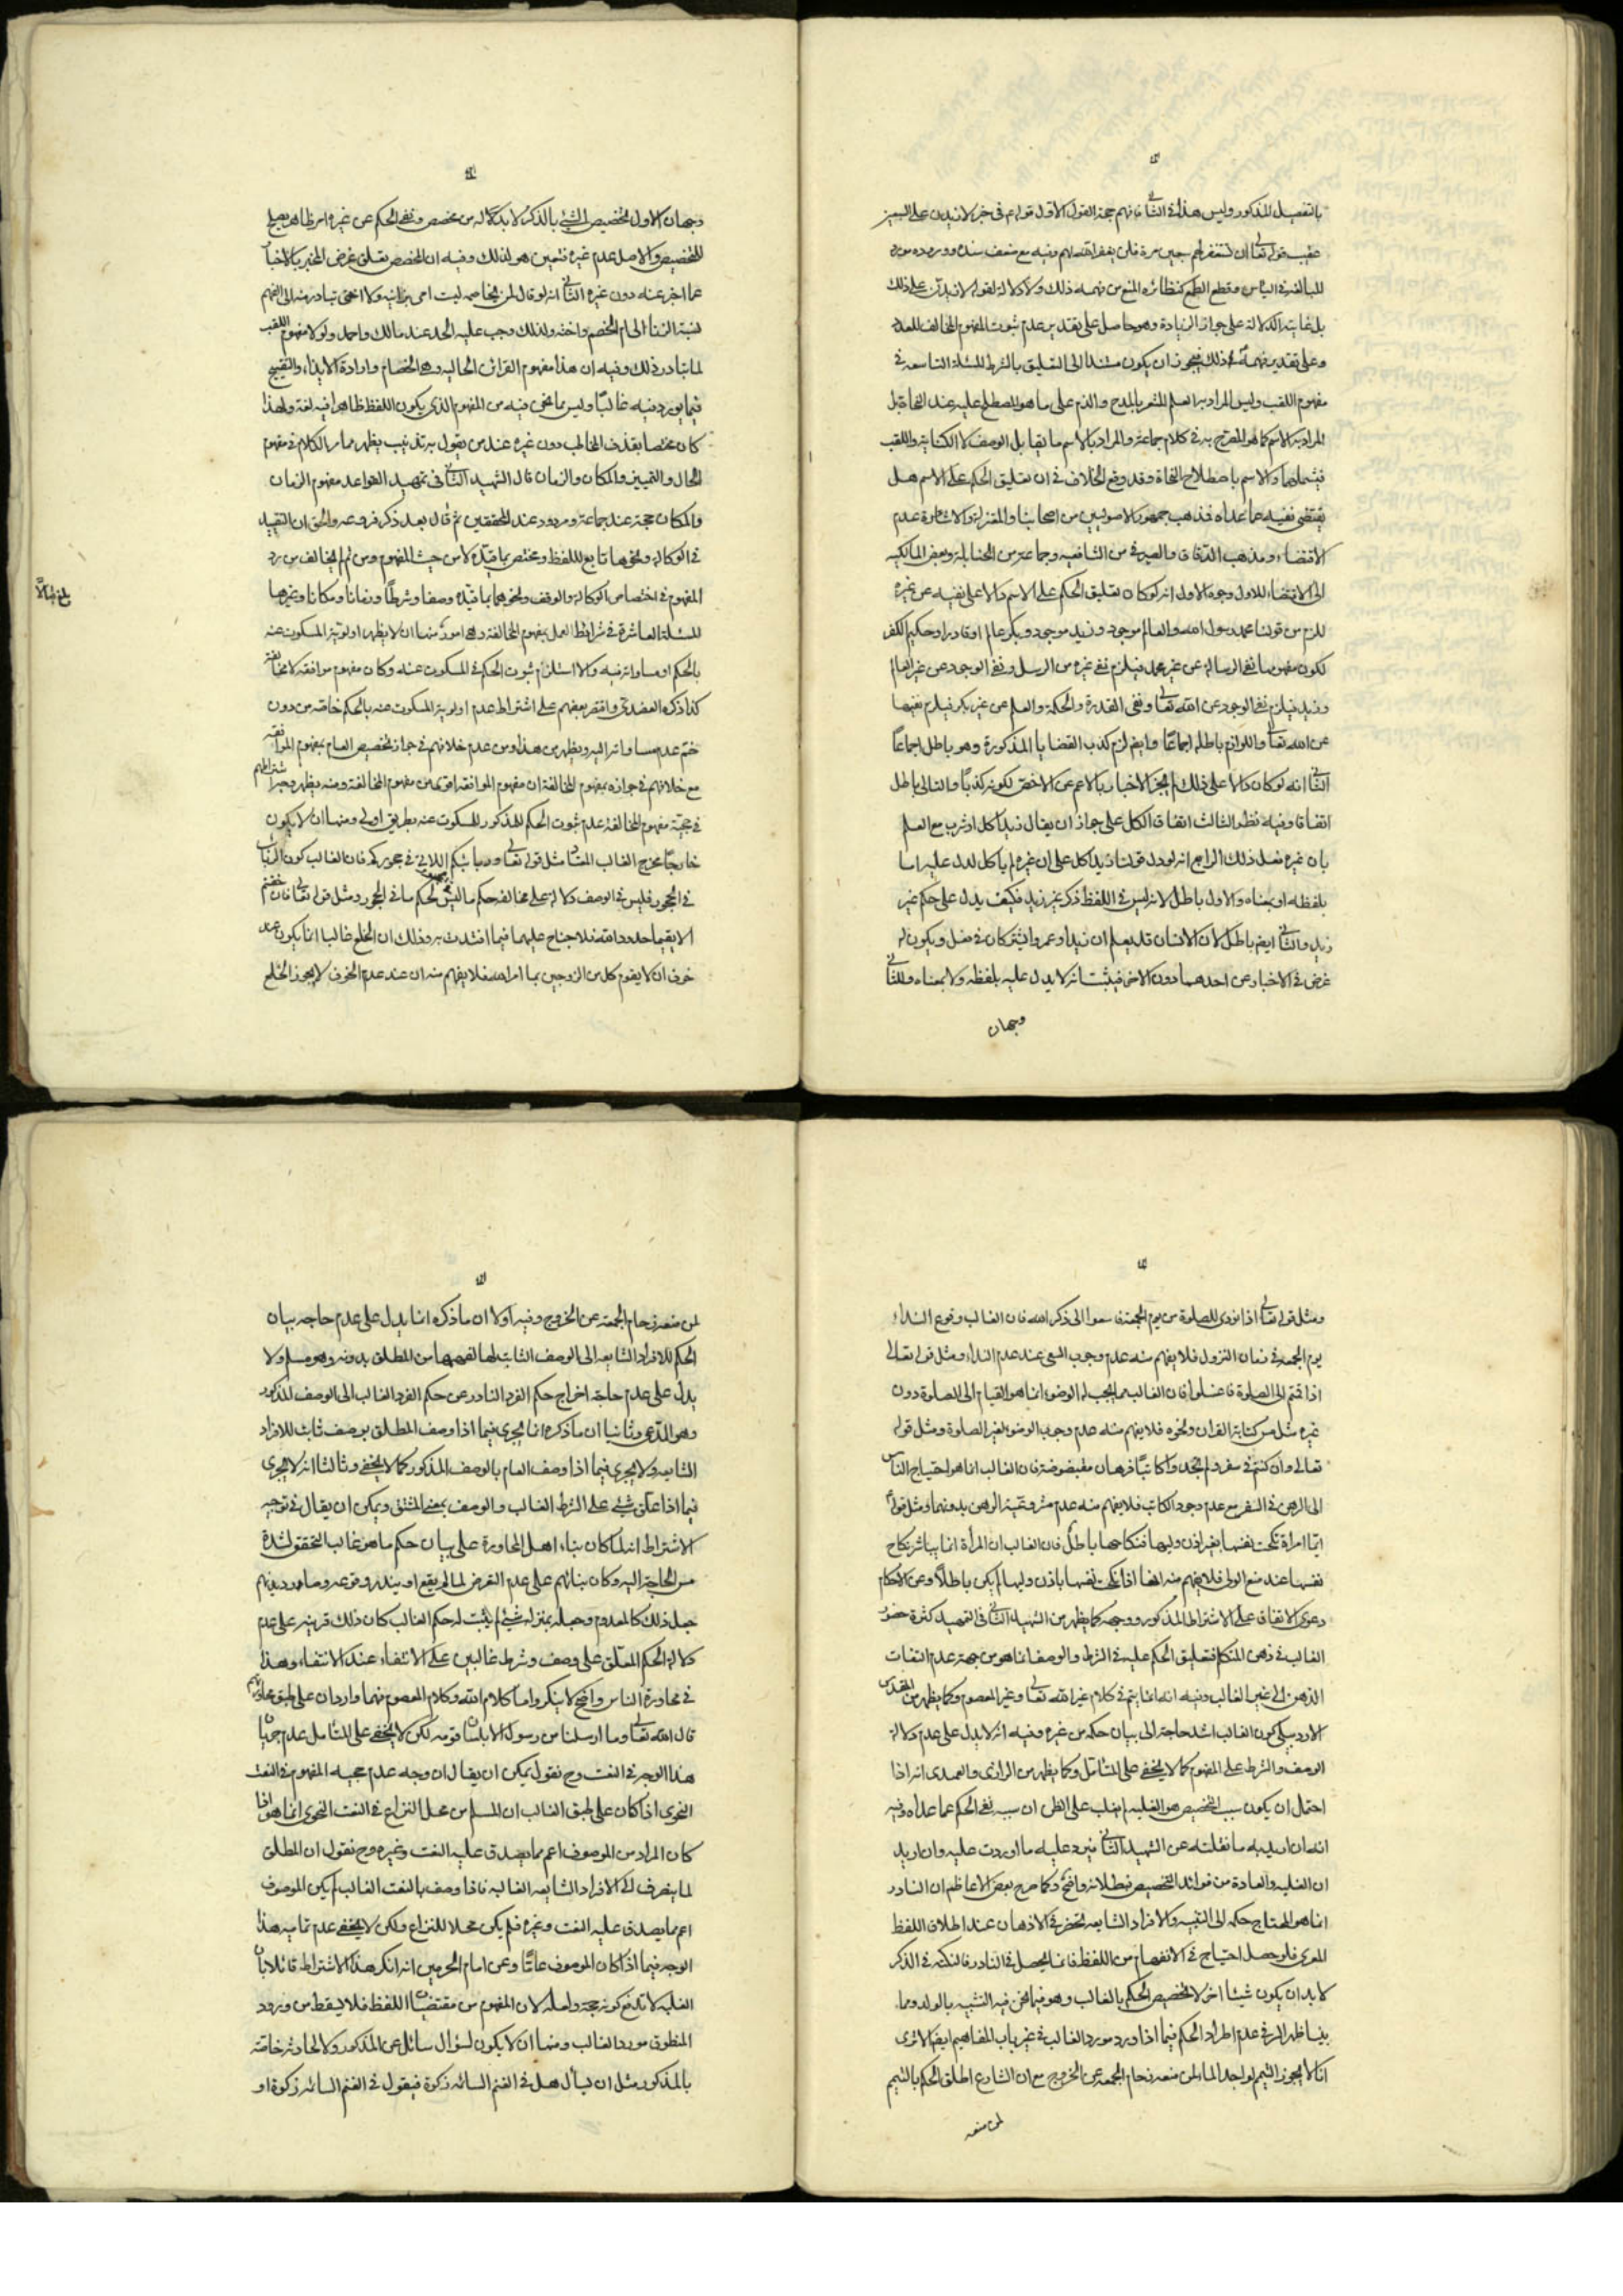 بالتفصيل المذكور وليس هذا في الثاني فانهم حجة القول الاول قوله في خبر لازيدن على السبعين
عقيب قوله تعالى ان تستغفر لهم سبعين مرة فلن يغفر الله لهم وفيه مع ضعف سنده ووروده مورد
للمبالغة في الياس وقطع الطمع كنظائره المنع من فهمه ذلك ولا دلالة لقوله لازيدن على ذلك
بل غايته الدلالة على جواز الزيادة وهو حاصل على تقدير عدم ثبوت المفهوم المخالف للعدد
وعلى تقدير فهمه ذلك فيجوز ان يكون مستندا الى التعليق بالشرط المسئلة التاسعة في
مفهوم اللقب وليس المراد به العلم المشعر بالمدح والذم على ما هو المصطلح عليه عند النحاة بل
المراد به الاسم كما هو المصرح به في كلام جماعة والمراد بالاسم ما يقابل الوصف لا الكناية واللقب
فيشملهما والاسم باصطلاح النحاة وقد وقع الخلاف في ان تعليق الحكم على الاسم هل
يقتضى نفيه عما عداه فذهب جمهور الاصوليين من اصحابنا والمعتزلة والاشاعرة عدم
الاقتضاء ومذهب الدقاق والصيرفي من الشافعيه وجماعة من الحنابلة وبعض المالكيه
الى الاقتضاء للاول وجوه الاول انه لو كان تعليق الحكم على الاسم دالا على نفيه عن غيره
للزم من قولنا محمد رسول الله والعالم موجود وزيد موجود وبكر عالم او قادر او حكيم الكفر
لكون مفهومها نفي الرسالة عن غير محمد فيلزم نفي غيره من الرسل ونفي الوجود عن غير العالم
وزيد فيلزم نفي الوجود عن الله تعالى ونفي القدرة والحكمة والعلم عن غير بكر فيلزم نفيها
عن الله تعالى واللوازم باطلة اجماعا وايضا لزم كذب القضايا المذكورة وهو باطل اجماعا
الثاني انه لو كان دالا على ذلك لم يجز الاخبار بالاعم عن الاخص لكونه كذبا والتالي باطل
اتفاقا وفيه نظر الثالث اتفاق الكل على جواز ان يقال زيد اكل او شرب مع العلم
بان غيره فعل ذلك الرابع انه لو دل قولنا زيد اكل على ان غيره لم ياكل لدل عليه اما
بلفظه او بمعناه والاول باطل لانه ليس في اللفظ ذكر غير زيد فكيف يدل على حكم غير
زيد والثاني ايضا باطل لان الانسان قد يعلم ان زيدا وعمروا يشتركان في فعل ويكون له
غرض في الاخبار عن احدهما دون الاخر فيثبت انه لا يدل عليه بلفظه ولا بمعناه وللثاني
وجهان
وجهان الاول تخصيص الشئ بالذكر لا بد له من مخصص ونفي الحكم عن غيره امر ظاهر يصلح
للتخصيص والاصل عدم غيره فتعين هو لذلك وفيه ان المخصص تعلق غرض المخبر بالاخبار
عما اخبر عنه دون غيره الثاني انه لو قال لمن يخاصمه ليست امى بزانية ولا اختى تبادر منه الى الفهم
نسبة الزنا الى ام الخصم واخته ولذلك وجب عليه الحد عند مالك واحمد ولولا مفهوم اللقب
لما تبادر ذلك وفيه ان هذا مفهوم القرائن الحالية وهى الخصام وارادة الايذاء والتقبيح
فيما يورد فيه غالبا وليس مما نحن فيه من المفهوم الذي يكون اللفظ ظاهرا فيه لغة ولهذا
كان مختصا بقذف المخاطب دون غيره عند من يقول به تذنيب يظهر مما مر الكلام في مفهوم
الحال والتمييز والمكان والزمان قال الشهيد الثاني في تمهيد القواعد مفهوم الزمان
والمكان حجة عند جماعة ومردود عند المحققين ثم قال بعد ذكر فروعه والحق ان التقييد
في الوكالة ونحوها تابع للفظ ومختص بما قيده لا من حيث المفهوم ومن ثم لم يخالف من رد
المفهوم في اختصاص الوكالة والوقف ونحوهما بما قيده وصفا وشرطا وزمانا ومكانا وغيرها
المسئلة العاشرة في شرائط العمل بمفهوم المخالفة وهى امور منها ان لا يظهر اولوية المسكوت عنه
بالحكم او مساواته فيه والا استلزم ثبوت الحكم في المسكوت عنه وكان مفهوم موافقة لا مخالفة
كذا ذكره العضدي واقتصر بعضهم على اشتراط عدم اولوية المسكوت عنه بالحكم خاصة من دون
ضم عدم مساواته اليه ويظهر من هذا ومن عدم خلافهم في جواز تخصيص العام بمفهوم الموافقة
مع خلافهم في جوازه بمفهوم المخالفة ان مفهوم الموافقة اقوى من مفهوم المخالفة ومنه يظهر وجه اشتراطهم
في حجية مفهوم المخالفة عدم ثبوت الحكم المذكور للمسكوت عنه بطريق اولى ومنها ان لا يكون
خارجا مخرج الغالب المعتاد مثل قوله تعالى وربائبكم اللاتي في حجوركم فان الغالب كون الربائب
في الحجور فليس في الوصف دلالة على مخالفة حكم ما ليس في الحجور لحكم ما في الحجور ومثل قوله تعالى فان خفتم
الا يقيما حدود الله فلا جناح عليهما فيما افتدت به وذلك ان الخلع غالبا انما يكون عند
خوف ان لا يقوم كل من الزوجين بما امر الله فلا يفهم منه ان عند عدم الخوف لا يجوز الخلع
ومثل قوله تعالى اذا نودى للصلوة من يوم الجمعة فاسعوا الى ذكر الله فان الغالب وقوع النداء
يوم الجمعة في زمان النزول فلا يفهم منه عدم وجوب السعي عند عدم النداء ومثل قوله تعالى
اذا قمتم الى الصلوة فاغسلوا فان الغالب مما يجب له الوضوء انما هو القيام الى الصلوة دون
غيره مثل مس كتابة القران ونحوه فلا يفهم منه عدم وجوب الوضوء لغير الصلوة ومثل قوله
تعالى وان كنتم في سفر ولم تجدوا كاتبا فرهان مقبوضة فان الغالب انما هو احتياج الناس
الى الرهن في السفر مع عدم وجود الكاتب فلا يفهم منه عدم مشروعية الرهن بدونهما ومثل قوله
ايما امراة نكحت نفسها بغير اذن وليها فنكاحها باطل فان الغالب ان المرأة انما يباشر نكاح
نفسها عند منع الولى فلا يفهم منه انها اذا نكحت نفسها باذن وليها لم يكن باطلا وعن الاحكام
دعوى الاتفاق على الاشتراط المذكور ووجهه كما يظهر من الشهيد الثاني في التمهيد كثرة حضور
الغالب في ذهن المتكلم فتعليق الحكم عليه في الشرط والوصف انما هو من جهة عدم التفات
الذهن الى غير الغالب وفيه انه انما يتم في كلام غير الله تعالى وغير المعصوم وكما يظهر من المقدس
الاردبيلي كون الغالب اشد حاجة الى بيان حكمه من غيره وفيه انه لا يدل على عدم دلالة
الوصف والشرط على المفهوم كما لا يخفى على المتامل وكما يظهر من الرازى والعمدى انه اذا
احتمل ان يكون سبب التخصيص هو الغلبة لم يغلب على الظن ان سببه نفي الحكم عما عداه وفيه
انه ان اريد به ما نقلته عن الشهيد الثاني فيرد عليه ما اوردت عليه وان اريد
ان الغلبة والعادة من فوائد التخصيص فبطلانه واضح وكما صرح بعض الاعاظم ان النادر
انما هو المحتاج حكمه الى التنبيه والافراد الشايعه تحضر في الاذهان عند اطلاق اللفظ
المعرى فلو حصل احتياج في الانفهام من اللفظ فانما يحصل في النادر فالنكته في الذكر
لا بد ان يكون شيئا اخر لا تخصيص الحكم بالغالب وهو فيما نحن فيه التشبيه بالولد ومما
بينا ظهر السر في عدم اطراد الحكم فيما اذا ورد مورد الغالب في غير باب المفاهيم ايضا الا ترى
انا لا نجوز التيمم لواجد الماء لمن منعه زحام الجمعة عن الخروج مع ان الشارع اطلق الحكم بالتيمم
لمن منعه
لمن منعه زحام الجمعة عن الخروج وفيه اولا ان ما ذكره انما يدل على عدم حاجة بيان
الحكم للافراد الشايعه الى الوصف الثابت لها لفهمها من المطلق بدونه وهو مسلم ولا
يدل على عدم حاجة اخراج حكم الفرد النادر عن حكم الفرد الغالب الى الوصف المذكور
وهو المدعى وثانيا ان ما ذكره انما يجرى فيما اذا وصف المطلق بوصف ثابت للافراد
الشايعه ولا يجرى فيما اذا وصف العام بالوصف المذكور كما لا يخفى وثالثا انه لا يجرى
فيما اذا علق شئ على الشرط الغالب والوصف بمعنى المشتق ويمكن ان يقال في توجيه
الاشتراط انه لما كان بناء اهل المحاورة على بيان حكم ما هو غالب التحقق لشدة
مس الحاجة اليه وكان بنائهم على عدم التعرض لما لم يقع او يندر وقوعه وصار ديدنهم
جعل ذلك كالمعدوم وجعله بمنزلة شئ لم يثبت له حكم الغالب كان ذلك قرينة على عدم
دلالة الحكم المعلق على وصف وشرط غالبين على الانتفاء عند الانتفاء وهذا
في محاورة الناس واضح لا ينكر واما كلام الله وكلام المعصوم فهما واردان على طبق محاوراتهم
قال الله تعالى وما ارسلنا من رسول الا بلسان قومه لكن لا يخفى على المتامل عدم جريان
هذا الوجه في النعت وح نقول يمكن ان يقال ان وجه عدم حجيه المفهوم في النعت
النحوى اذا كان على طبق الغالب ان المسلم من محل النزاع في النعت النحوى انما هو اذا
كان المراد من الموصوف اعم مما يصدق عليه النعت وغيره وح نقول ان المطلق
لما ينصرف الى الافراد الشايعه الغالبة فاذا وصف بالنعت الغالب لم يكن الموصوف
اعم مما يصدق عليه النعت وغيره فلم يكن محلا للنزاع ولكن لا يخفى عدم تمامية هذا
الوجه فيما اذا كان الموصوف عاما وعن امام الحرمين انه انكر هذا الاشتراط قائلا بان
الغلبة لا تدفع كونه حجة ولعله لان المفهوم من مقتضيات اللفظ فلا يسقط من ورود
المنطوق مورد الغالب ومنها ان لا يكون لسؤال سائل عن المذكور ولا لحادثة خاصة
بالمذكور مثل ان يسأل هل في الغنم السائمه زكوة فيقول في الغنم السائمه زكوة او